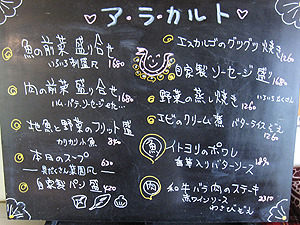 ア・ラ・カルト
魚の前菜 盛り合せ
いろいろ刺盛風 1680
肉の前菜 盛り合せ
ハム・パテ、ソーセージ、せせ… 1680
地魚と野菜のフリット盛
カリカリット魚 840
本日のスープ
具だくさん菜園風 630
自家製パン盛 420
エスカルゴのグツグツ焼き
1260
自家製 ソーセージ盛り
1680
野菜の蒸し焼き
いろいろたくさん
1260
エビのクリーム煮
バターライス
1260
魚
イトヨリのポワレ
香草入りバターソース
1890
肉
和牛バラ肉のステーキ
赤ワインソース
わさび
2310